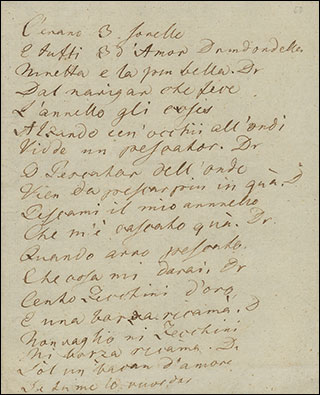 C'erano 3. sorelle
E tutti 3 d'Amor Drindondelle
Ninetta e la piu bella. Dr
Dal navigar che feve
L'annello gli
Alzando een occhii all'ondi
Vidde un pescator. Dr
O Pescator dell'onde
Vien da pescar piu in quà. D
Pescami il mio annnello
Che m'è cascato quà. Dr.
Quando avro pescato
Che cosa mi darai. Dr
Cento Zecchini d'oro
E una borza ricamà. D
Non vaglio ni Zecchini
Ni borza ricama. Dr
Sol un bacin d'amore
Se tu me lo